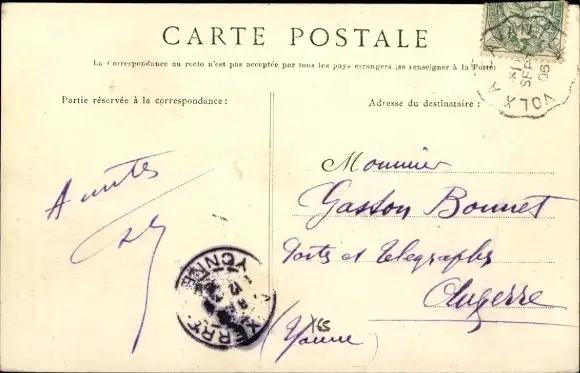 CARTE POSTALE
La Correspondance au recto n'est pas acceptée par tous les pays étrangers (se renseigner à la Poste)
Partie réservée à la correspondance:
Adresse du destinataire:
VOLX
SEPT
06
Monnier
Gaston Bonnet
Postes et Telegraphes
Auxerre
(Yonne)
165
Amitiés
YONNE